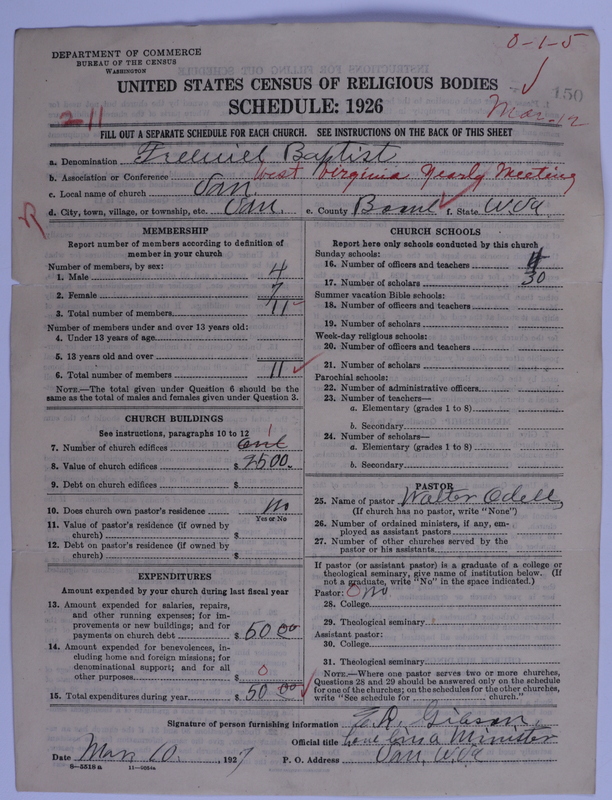 DEPARTMENT OF COMMERCE
BUREAU OF THE CENSUS
WASHINGTON
0-1-5
150
UNITED STATES CENSUS OF RELIGIOUS BODIES
SCHEDULE: 1926
Mar-12
2-11
FILL OUT A SEPARATE SCHEDULE FOR EACH CHURCH. SEE INSTRUCTIONS ON THE BACK OF THIS SHEET
a. Denomination Freewiel Baptist
b. Association or Conference West Virginia Yearly Meeting
c. Local name of church Van
d. City, town, village, or township, etc. Van e. County Boone f. State W.Va
MEMBERSHIP
Report number of members according to definition of member in your church
Number of members, by sex:
1. Male 4
2. Female 7
3. Total number of members 11
Number of members under and over 13 years old:
4. Under 13 years of age
5. 13 years old and over
6. Total number of members 11
NOTE.—The total given under Question 6 should be the same as the total of males and females given under Question 3.
CHURCH BUILDINGS
See instructions, paragraphs 10 to 12
7. Number of church edifices one 1
8. Value of church edifices $ 2500.
9. Debt on church edifices $
10. Does church own pastor's residence no
Yes or No
11. Value of pastor's residence (if owned by church) $
12. Debt on pastor's residence (if owned by church) $
EXPENDITURES
Amount expended by your church during last fiscal year
13. Amount expended for salaries, repairs, and other running expenses; for improvements or new buildings; and for payments on church debt $ 50 00
14. Amount expended for benevolences, including home and foreign missions; for denominational support; and for all other purposes $ 0
15. Total expenditures during year $ 50 00
CHURCH SCHOOLS
Report here only schools conducted by this church
Sunday schools:
16. Number of officers and teachers 4
17. Number of scholars 30
Summer vacation Bible schools:
18. Number of officers and teachers
19. Number of scholars
Week-day religious schools:
20. Number of officers and teachers
21. Number of scholars
Parochial schools:
22. Number of administrative officers
23. Number of teachers—
a. Elementary (grades 1 to 8)
b. Secondary
24. Number of scholars—
a. Elementary (grades 1 to 8)
b. Secondary
PASTOR
25. Name of pastor Walter Odell
(If church has no pastor, write "None")
26. Number of ordained ministers, if any, employed as assistant pastors
27. Number of other churches served by the pastor or his assistants
If pastor (or assistant pastor) is a graduate of a college or theological seminary, give name of institution below. (If not a graduate, write "No" in the space indicated.)
Pastor: 0 no
28. College
29. Theological seminary
Assistant pastor:
30. College
31. Theological seminary
NOTE.—Where one pastor serves two or more churches, Questions 28 and 29 should be answered only on the schedule for one of the churches; on the schedules for the other churches, write "See schedule for church."
Signature of person furnishing information E.R. Gibson
Official title Minister
Date Mar 10, 1927 P. O. Address Van, W.Va
8—5516 a 11—9264a